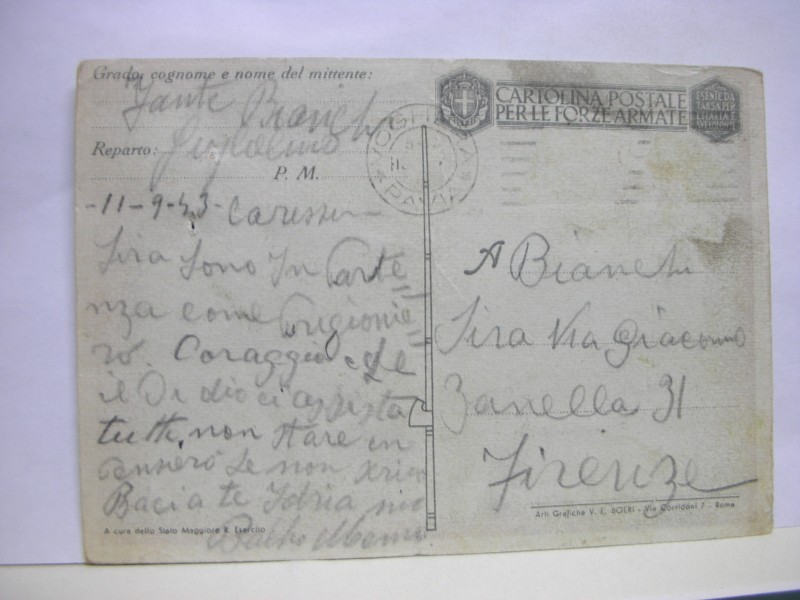 Grado, cognome e nome del mittente:
Fante Bianchi
Guglielmo
Reparto:
P. M.
-11-9-43- Carissima
Lira sono In Parte=
nza come Prigionie=
ro. Coraggio e
il Dio ci assista
tutti, non stare in
pensiero se non
Bacia te Idria
A cura dello Stato Maggiore R. Esercito
CARTOLINA POSTALE
PER LE FORZE ARMATE
ESENTE DA
VOGHERA
PAVIA
A Bianchi
Lira Via Giacomo
Zanella 31
Firenze
Arti Grafiche V. E. BOERI - Via Corridoni 7 - Roma